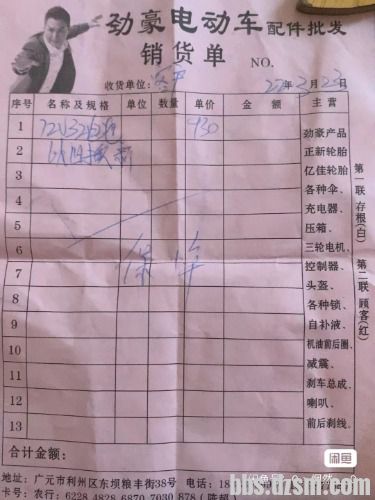 劲豪电动车配件批发
销货单 NO.
收货单位: 22年3月23日
序号 名称及规格 单位 数量 单价 金额 主营
1 72V32 430
2 以旧换新
3
4
5
6
7
8
9
10
11
12
13
劲豪产品
正新轮胎
亿佳轮胎
各种伞、
充电器、
压箱、
三轮电机、
控制器、
头盔、
各种锁、
自补液、
机油前后圈、
减震、
刹车总成、
喇叭、
前后刹线、
第一联 存根(白) 第二联 顾客(红)
合计金额:
地址:广元市利州区东坝粮丰街38号 电话:18
卡号:农行:6228 4828 6870 7030 878
闲鱼
bbs.dzsm.com